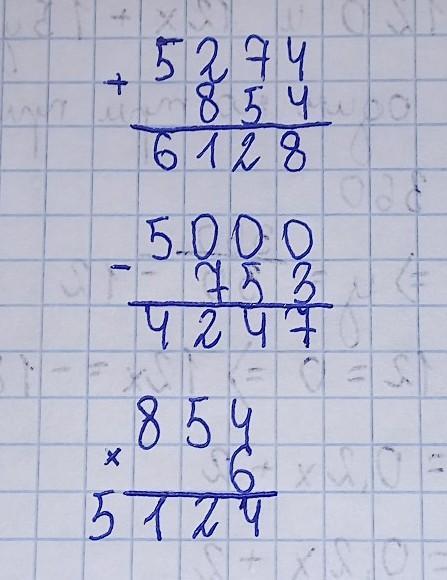 5274
+
854
6128
5000
-
753
4247
854
×
6
5124